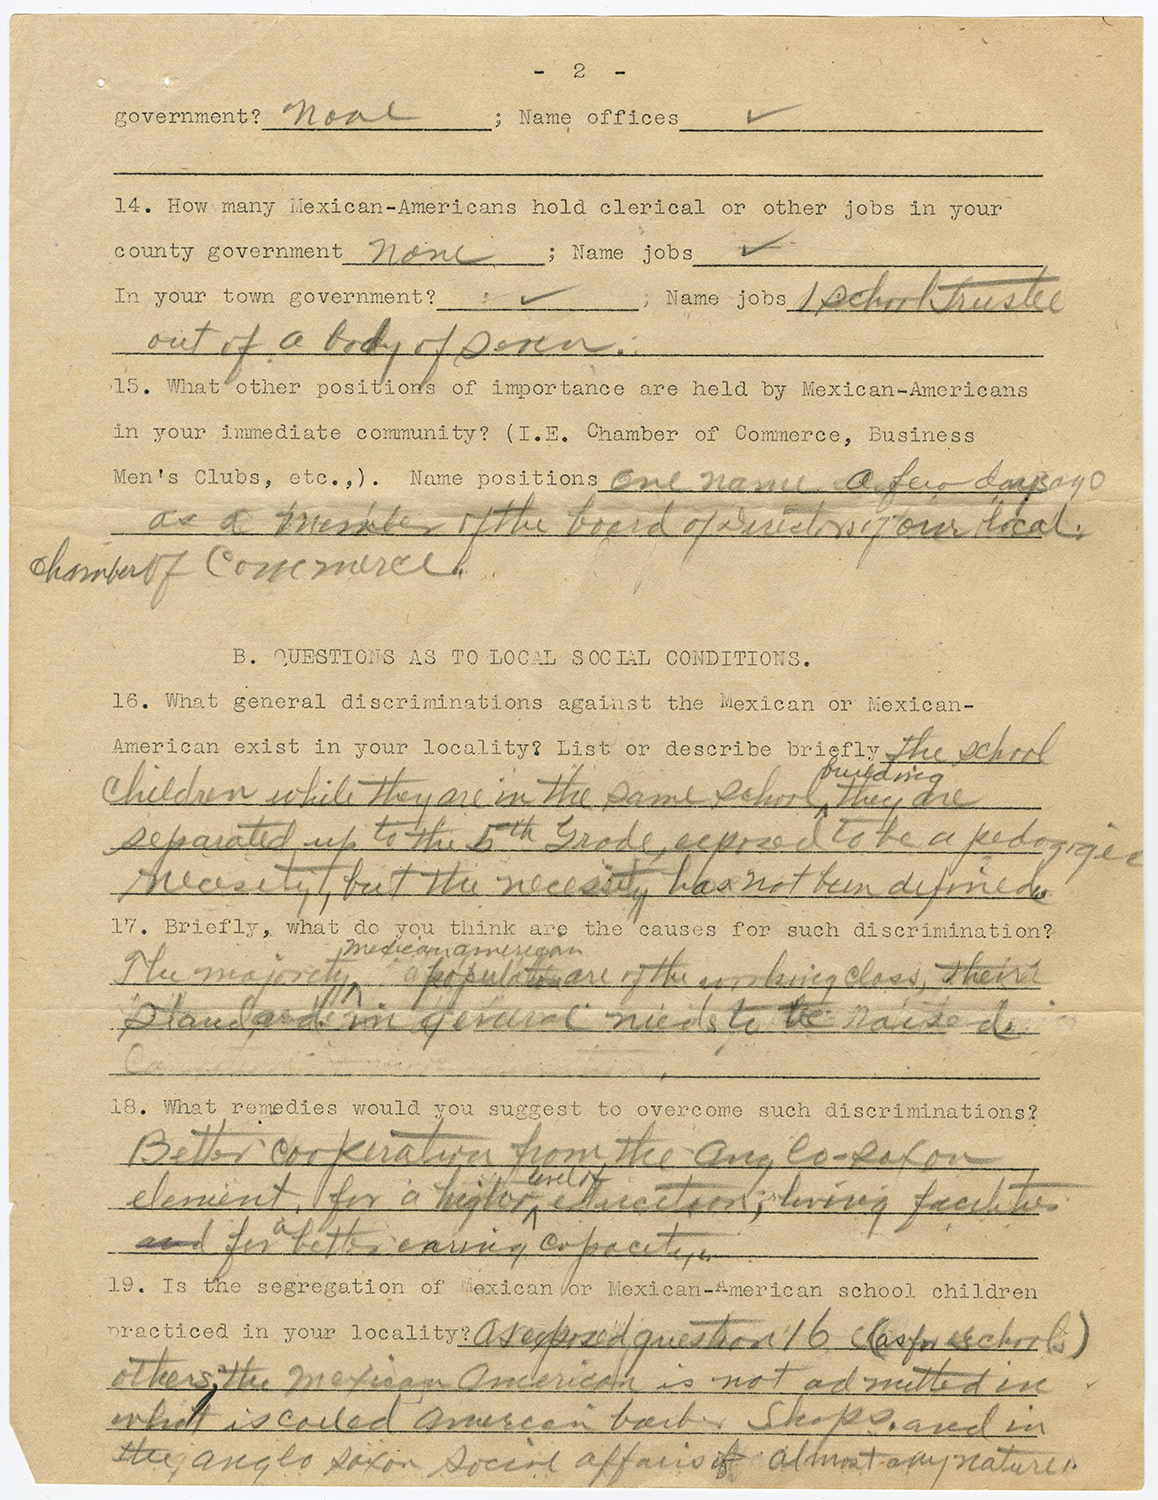 - 2 -
government? None ; Name offices ✓
14. How many Mexican-Americans hold clerical or other jobs in your
county government none ; Name jobs ✓
In your town government? ✓ ; Name jobs 1 school trustee
out of a body of seven.
15. What other positions of importance are held by Mexican-Americans
in your immediate community? (I.E. Chamber of Commerce, Business
Men's Clubs, etc.,). Name positions one name a few days ago
as a member of the board of directors of our local.
chamber of Commerce.
B. QUESTIONS AS TO LOCAL SOCIAL CONDITIONS.
16. What general discriminations against the Mexican or Mexican-
American exist in your locality? List or describe briefly the school
building
children while they are in the same school, they are
separated up to the 5th Grade, exposed to be a pedagogic
necesity, but the necessity has not been defined.
17. Briefly, what do you think are the causes for such discrimination?
mexican american
The majority population are of the working class, their
Standards in general needs to be raised.
18. What remedies would you suggest to overcome such discriminations?
Better cooperation from the anglo-saxon
level of
element, for a higher education, living facilities
and for a better earing capacity.
19. Is the segregation of Mexican or Mexican-American school children
practiced in your locality? As exposed question 16 (as for schools)
others, the Mexican American is not admitted in
what is called American barber Shops. and in
the anglo saxon social affairs of almost any nature.